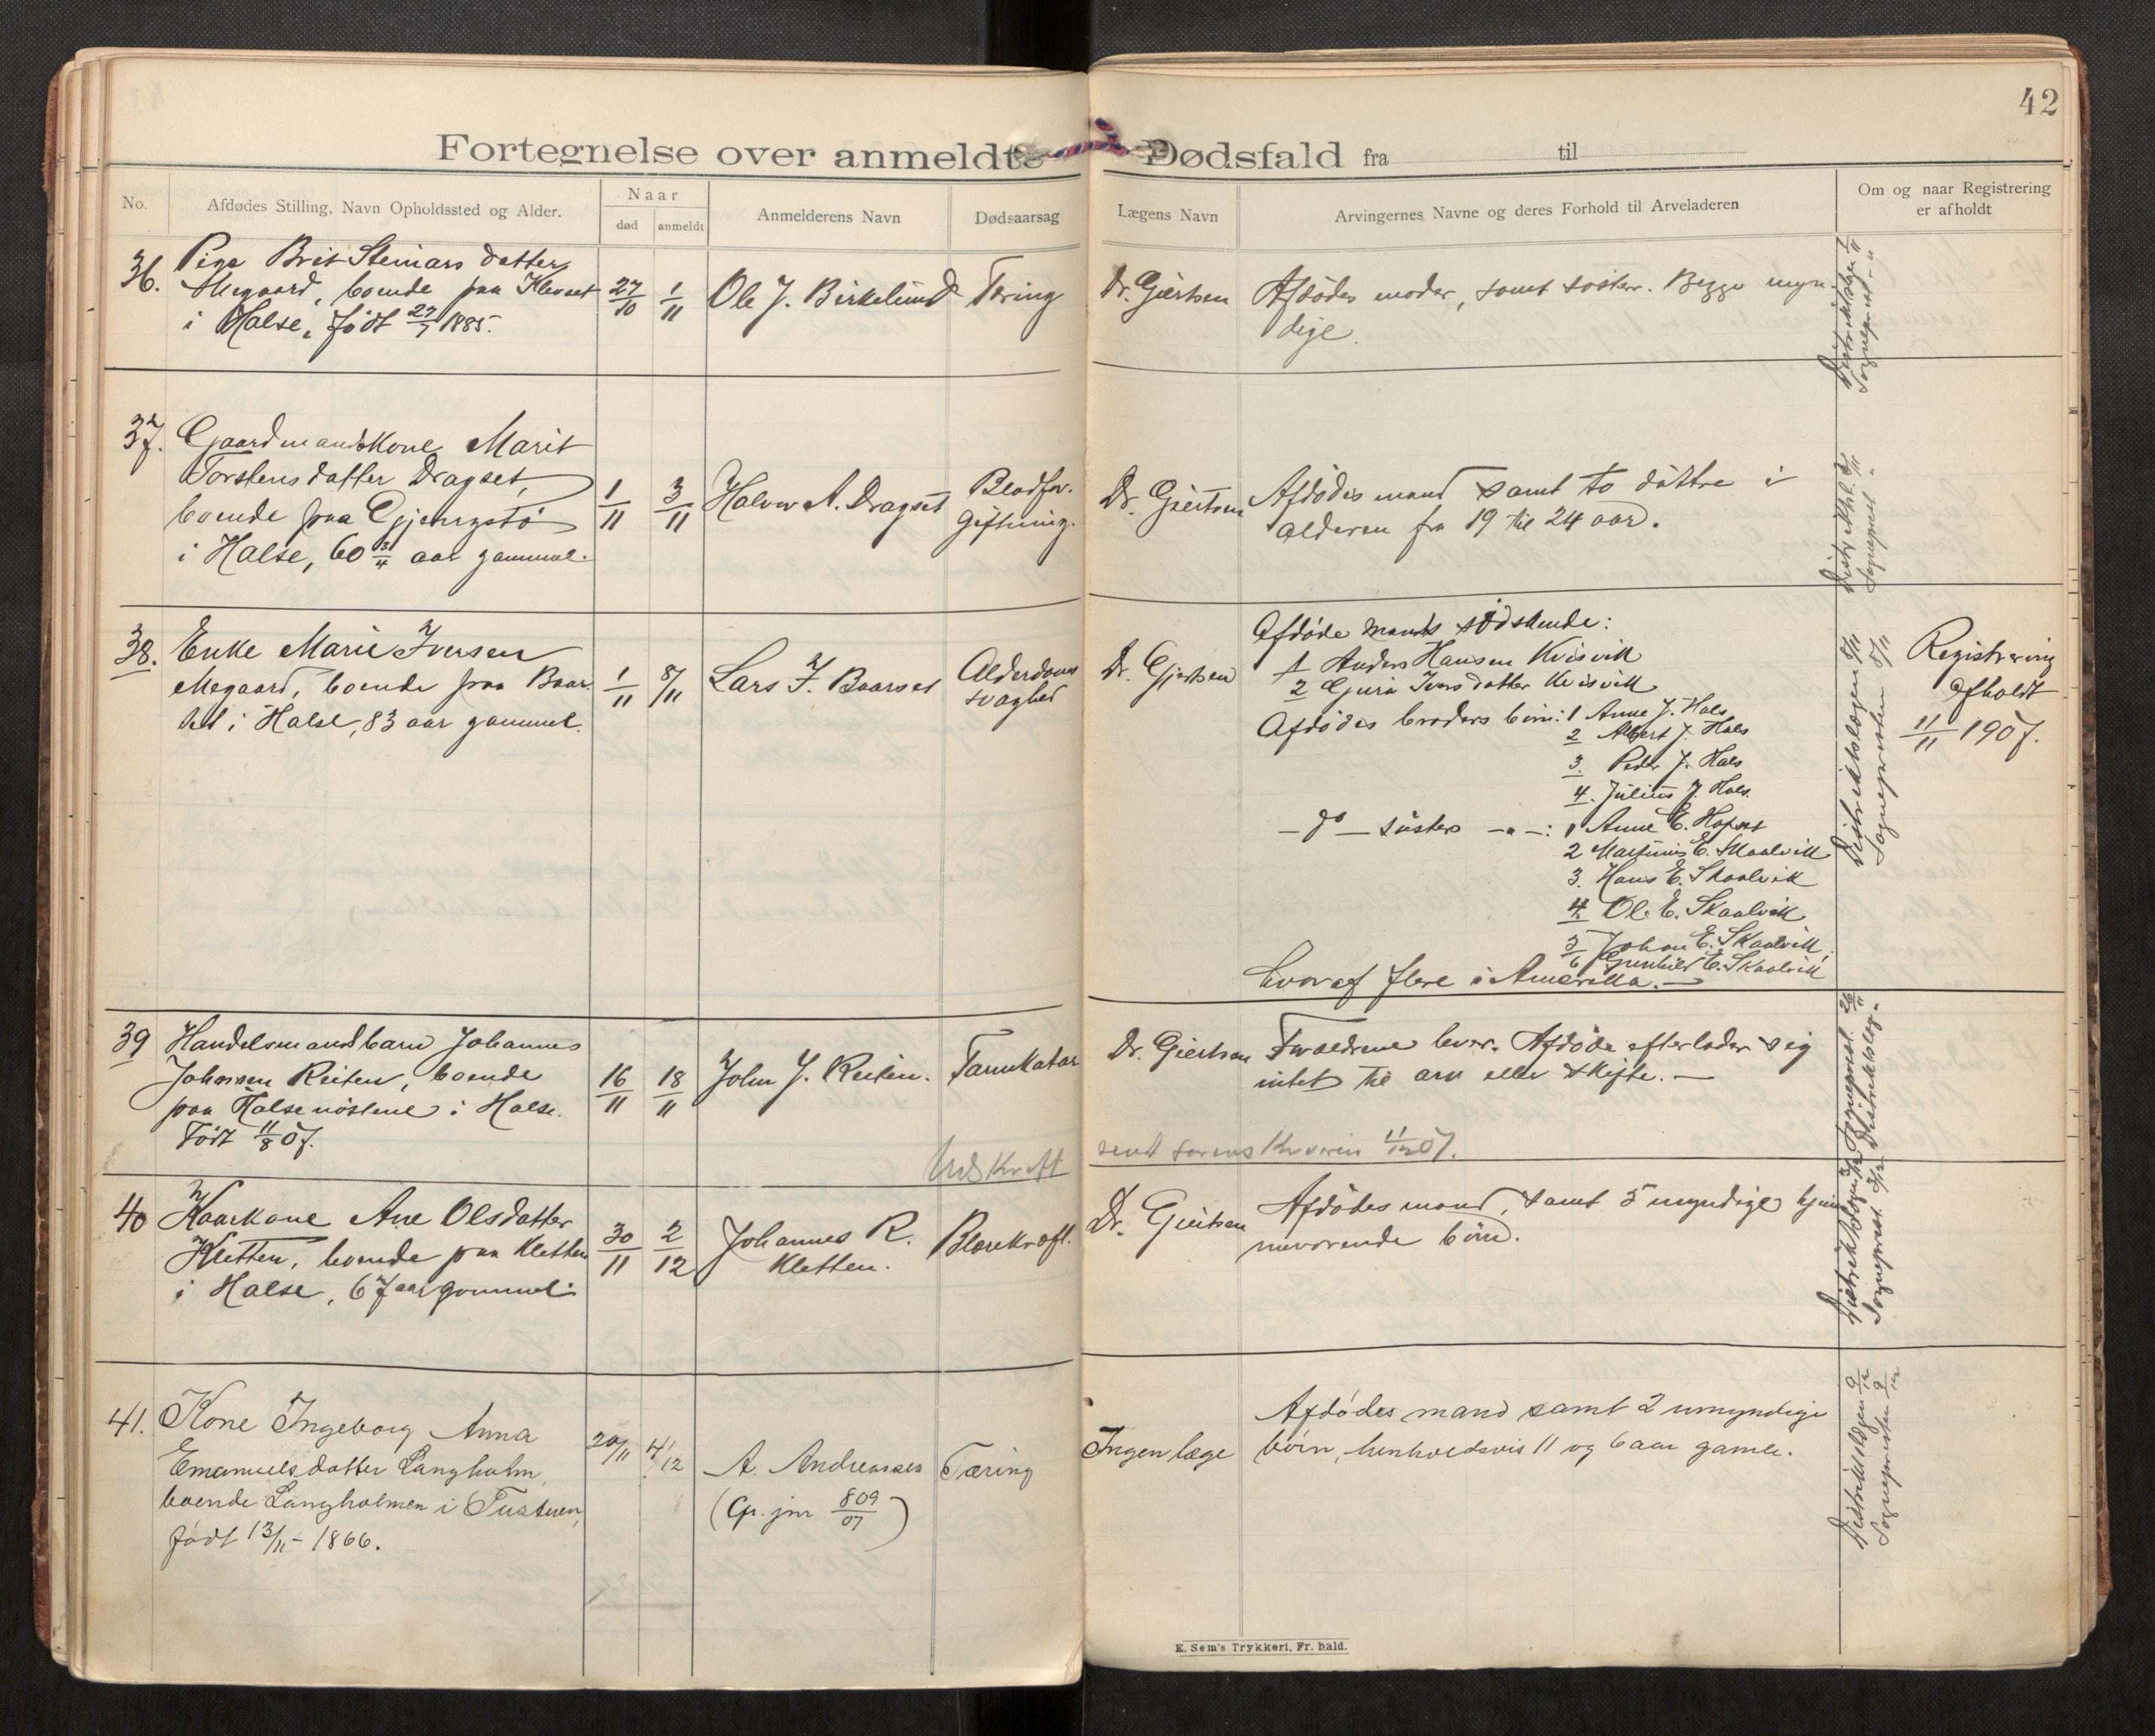 42
Fortegnelse over anmeldte Dødsfald fra til
No.
Afdødes Stilling, Navn Opholdssted og Alder.
Naar
død
anmeldt
Anmelderens Navn
Dødsaarsag
Lægens Navn
Arvingernes Navne og deres Forhold til Arveladeren
Om og naar Registrering
er afholdt
36.
Pige Brit Steinarsdatter
Megaard, boende paa Klevset
i Halse, født 1885.
27/10
1/11
Ole J. Birkelund
Tæring
Dr. Giertsen
Afdødes moder, samt søster. Begge myn-
dige.
37.
Gaardmandskone Marit
Torstensdatter Dragset,
boende paa Gjengstø
i Halse, 60 3/4 aar gammel.
1/11
3/11
Halvor A. Dragset
Blodfor-
giftning.
Dr. Giertsen
Afdødes mand samt to døttre i
alderen fra 19 til 24 aar.
38.
Enke Marie Iversen
Megaard, boende paa Baar-
set i Halse, 83 aar gammel.
1/11
8/11
Lars I. Baarset
Alderdoms
svaghed
Dr. Gjertsen
Afdøde mands sødskende:
1 Anders Hansen Kvisvik
2 Guri Iversdatter Kvisvik
Afdødes broders børn: 1 Anne J. Hals
2 Albert J. Hals
3. Peder J. Hals
4. Julius J. Hals.
— do — søsters — " —: 1 Anne E. Hofset
2 Martinus E. Skaalvik
3. Hans E. Skaalvik
4. Ole E. Skaalvik
5 Johan E. Skaalvik
6 Gunhild E. Skaalvik
hvoraf flere i Amerikka. —
Distriktslægen 8/11
Sognepresten 8/11
Registrering
afholdt
11/11 1907.
39
Handelsmandsbarn Johannes
Johnsen Reiten, boende
paa Halsenøstene i Halse.
Født 11/8 07.
16/11
18/11
John J. Reiten.
Tarmkatar
Dr. Giertsen
Forældrene lever. Afdøde efterlader sig
intet til arv eller skifte. —
Udskrift
sendt sorenskriveren 11/12 07.
40
Kaarkone Ane Olsdatter
Kletten, boende paa Kletten
i Halse, 67 aar gammel.
30/11
2/12
Johannes R.
Kletten.
Blærekræft.
Dr. Giertsen
Afdødes mand, samt 5 myndige hjem-
meværende børn.
41.
Kone Ingeborg Anna
Emanuelsdatter Langholm,
boende Langholmen i Tustern,
født 13/11 - 1866.
20/11
4/12
A. Andreassen
(Cp. jnr 809/07)
Tæring
Ingen læge
Afdødes mand samt 2 umyndige
børn, henholdsvis 11 og 6 aar gamle.
Distriktslægen 9/12
Sognepresten 9/12
E. Sem's Trykkeri, Fr.hald.